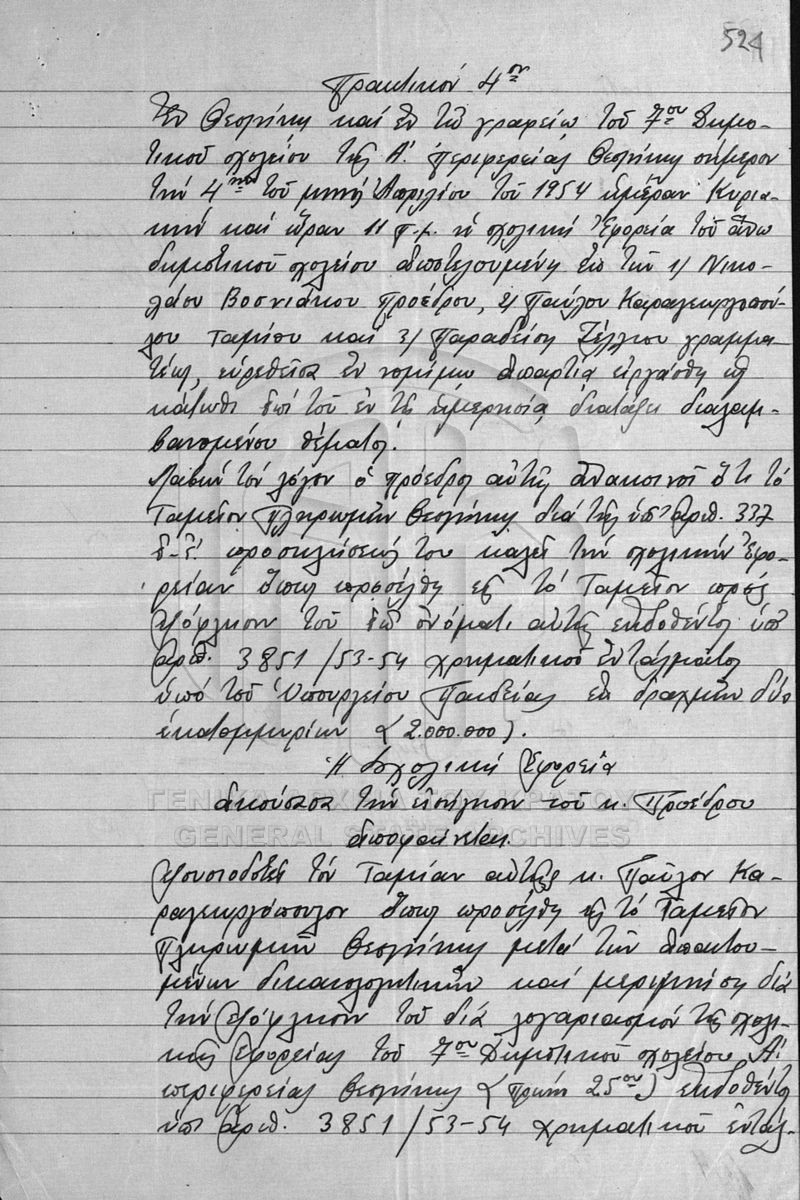 524
Πρακτικόν 4ον
Ἐν Θεσ/νίκῃ καί ἐν τῷ γραφείῳ τοῦ 7ου Δημο-
τικοῦ σχολείου τῆς Α΄. περιφερείας Θεσ/νίκης σήμερον
τήν 4ην τοῦ μηνός Ἀπριλίου τοῦ 1954 ἡμέραν Κυρια-
κήν καί ὥραν 11 π.μ. ἡ σχολική Ἐφορεία τοῦ ἄνω
δημοτικοῦ σχολείου ἀποτελουμένη ἐκ τῶν 1/ Νικο-
λάου Βοσνιάκου προέδρου, 2/ Παύλου Καραγεωργοπού-
λου ταμίου καί 3/ Παραδείση Ζέλλιου γραμμα
τέως, εὑρεθεῖσα ἐν νομίμῳ ἀπαρτίᾳ εἰργάσθη ὡς
κάτωθι ἐπί τοῦ ἐν τῇ ἡμερησίᾳ διατάξει διαλαμ-
βανομένου θέματος.
Λαβών τόν λόγον ὁ πρόεδρος αὐτῆς ἀνακοινοῖ ὅτι τό
Ταμεῖον Πληρωμῶν Θεσ/νίκης διά τῆς ὑπ' ἀριθ. 337
ἐ.ἔ. προσκλήσεώς του καλεῖ τήν σχολικήν Ἐφο-
ρείαν ὅπως προσέλθῃ εἰς τό Ταμεῖον πρός
ἐξόφλησιν τοῦ ἐπ' ὀνόματι αὐτῆς ἐκδοθέντος ὑπ'
ἀριθ. 3851/53-54 χρηματικοῦ ἐντάλματος
ὑπό τοῦ Ὑπουργείου Παιδείας ἐκ δραχμῶν δύο
ἑκατομμυρίων (2.000.000).
Ἡ Σχολική Ἐφορεία
ἀκούσασα τήν εἰσήγησιν τοῦ κ. Προέδρου
ἀποφαίνεται
ΓΕΝΙΚΑ ΑΡΧΕΙΑ ΤΟΥ ΚΡΑΤΟΥΣ
GENERAL STATE ARCHIVES
Ἐξουσιοδοτεῖ τόν Ταμίαν αὐτῆς κ. Παῦλον Κα-
ραγεωργόπουλον ὅπως προσέλθῃ εἰς τό Ταμεῖον
Πληρωμῶν Θεσ/νίκης μετά τῶν ἀπαιτου-
μένων δικαιολογητικῶν καί μεριμνήσῃ διά
τήν ἐξόφλησιν τοῦ διά λογαριασμόν τῆς σχολι-
κῆς Ἐφορείας τοῦ 7ου Δημοτικοῦ σχολείου Α΄.
περιφερείας Θεσ/νίκης (πρώην 25ου) ἐκδοθέντος
ὑπ' ἀριθ. 3851/53-54 χρηματικοῦ ἐντάλ-